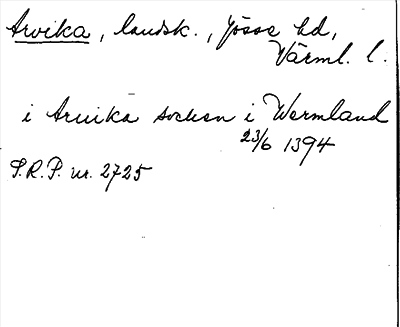 Arvika, landsk., Jösse hd,
Värml. l.
i Arvika socken i Wermland
23/6 1394
S.R.P. nr. 2725